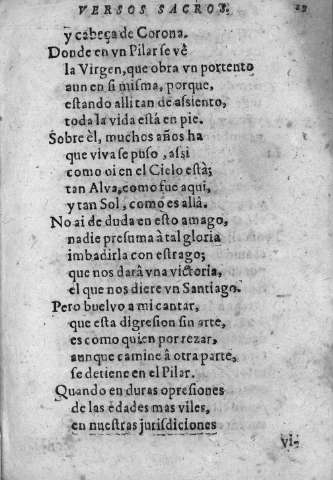 VERSOS SACROS. 29
y cabeça de Corona.
Donde en vn Pilar se vè
la Virgen, que obra vn portento
aun en si misma, porque,
estando alli tan de assiento,
toda la vida està en pie.
Sobre èl, muchos años ha
que viva se puso, assi
como oi en el Cielo està;
tan Alva, como fue aqui,
y tan Sol, como es allà.
No ai de duda en esto amago,
nadie presuma à tal gloria
imbadirla con estrago;
que nos darà vna victoria,
el que nos diere vn Santiago.
Pero buelvo a mi cantar,
que esta digresion sin arte,
es como quien por rezar,
aunque camine à otra parte,
se detiene en el Pilar.
Quando en duras opresiones
de las edades mas viles,
en nuestras jurisdiciones
vi-